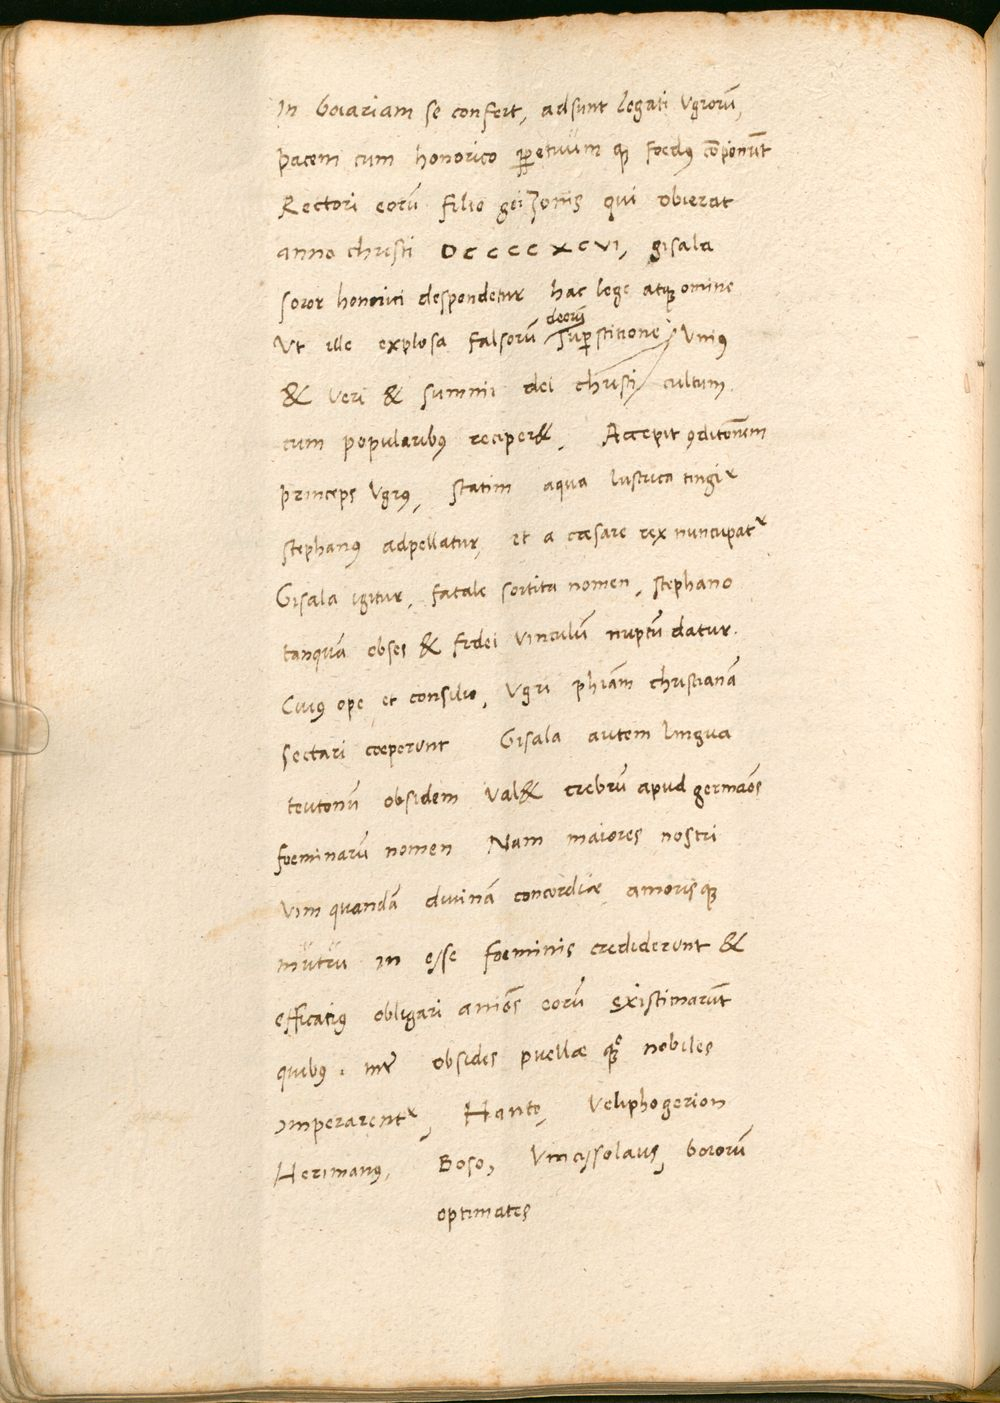 In boiariam se confert, adsunt legati Vgrorū,
pacem cum honorico ꝑpetuum qꝫ foedꝰ cōponūt
Rectori eorū filio geizonis qui obierat
anno christi DCCCCXCVI, gisala
soror honorici despondetur hac lege atqꝫ omine
deorū
Vt ille explosa falsorū suꝑstitione, Vniꝰ
& veri & summi dei christi cultum
cum popularibꝰ reciper&, Accepit ꝯditionem
princeps Vgrꝰ, statim aqua lustrica tingiᵗ
stephanꝰ adpellatur, et a cæsare rex nuncupatᵗ
Gisala igitur, fatale sortita nomen, stephano
tanquā obses & fidei vinculū nuptū datur.
Cuiꝰ ope et consilio, Vgri phiam christianā
sectari coeperunt Gisala autem lingua
teutonū obsidem val& crebrū apud germāos
foeminarū nomen Nam maiores nostri
vim quandā diuinā concordiæ amorisqꝫ
mutui in esse foeminis crediderunt &
efficatiꝰ obligari aniōs eorū existimarūt
quibꝰ. inṫ obsides puellæ qꝫ nobiles
imperarentᵗ, Hanto, Veliphogerion
Herimanꝰ, Boso, Vincissolaus, boiorū
optimates